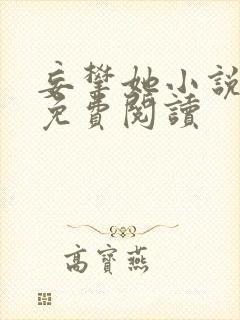 妄攀她小說
免費閱讀
高寶燕